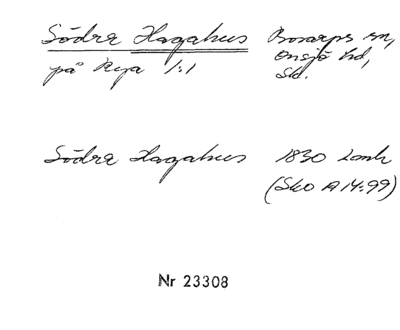 Södra Hagahus Bosarps sn,
på Rya 1:1 Onsjö hd,
Sk.
Södra Hagahus 1830 Lmh
(Sko A 14:99)
Nr 23308